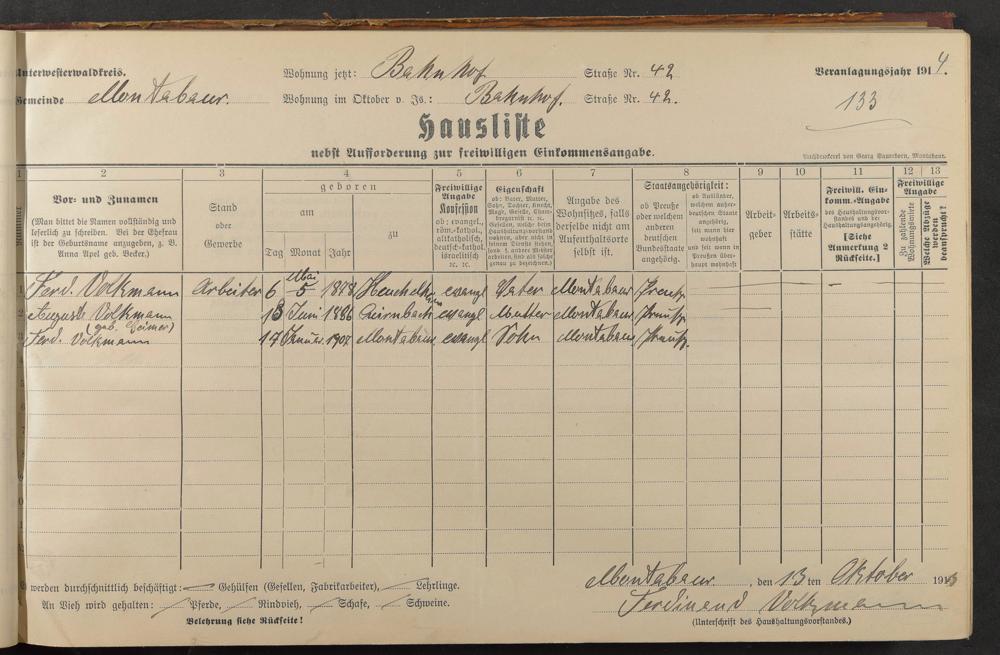 Unterwesterwaldkreis. Wohnung jetzt: Bahnhof Straße Nr. 42 Veranlagungsjahr 1914.
Gemeinde Montabaur. Wohnung im Oktober v. Js.: Bahnhof. Straße Nr. 42. 133
Hausliste
nebst Aufforderung zur freiwilligen Einkommensangabe.
Buchdruckerei von Georg Sauerborn, Montabaur.
1 2 3 4 5 6 7 8 9 10 11 12 13
Nummer
Vor- und Zunamen
(Man bittet die Namen vollständig und
leserlich zu schreiben. Bei der Ehefrau
ist der Geburtsname anzugeben, z. B.
Anna Apel geb. Becker.)
Stand
oder
Gewerbe
geboren
am
Tag Monat Jahr
zu
Freiwillige
Angabe
Konfession
ob: evangel.,
röm.-kathol.,
altkatholisch,
deutsch-kathol.
israelitisch
ec. ec.
Eigenschaft
ob: Vater, Mutter,
Sohn, Tochter, Knecht,
Magd, Geselle, Cham-
bregarnist ec. ec.
Gesellen, welche beim
Haushaltungsvorstand
wohnen, aber nicht in
seinem Dienste stehen,
sond. f. andere Meister
arbeiten, sind als solche
genau zu bezeichnen.)
Angabe des
Wohnsitzes, falls
derselbe nicht am
Aufenthaltsorte
selbst ist.
Staatsangehörigkeit:
ob Preuße
oder welchem
anderen
deutschen
Bundesstaate
angehörig.
ob Ausländer,
welchem außer-
deutschen Staate
angehörig,
seit wann hier
wohnhaft
und seit wann in
Preußen über-
haupt wohnhaft
Arbeit-
geber
Arbeits-
stätte
Freiwill. Ein-
komm.-Angabe
des Haushaltungsvor-
standes und der
Haushaltungsangehörig.
[Siehe
Anmerkung 2
Rückseite.]
Freiwillige
Angabe
Zu zahlende
Wohnungsmiete
Welche Abzüge
werden
beansprucht?
1 Ferd. Volkmann Arbeiter 6 Mai 5 1878 evangl Vater Montabaur Preuß.
2 Auguste Volkmann 13 Juni 1886 evangl Mutter Montabaur Preuß.
(geb.
3 Ferd. Volkmann 17 Januar 1907 Montabaur evangl Sohn Montabaur Preuß.
werden durchschnittlich beschäftigt: — Gehülfen (Gesellen, Fabrikarbeiter), — Lehrlinge.
An Vieh wird gehalten: — Pferde, — Rindvieh, — Schafe, — Schweine.
Belehrung siehe Rückseite!
Montabaur, den 13ten Oktober 1913
Ferdinand Volkmann
(Unterschrift des Haushaltungsvorstandes.)